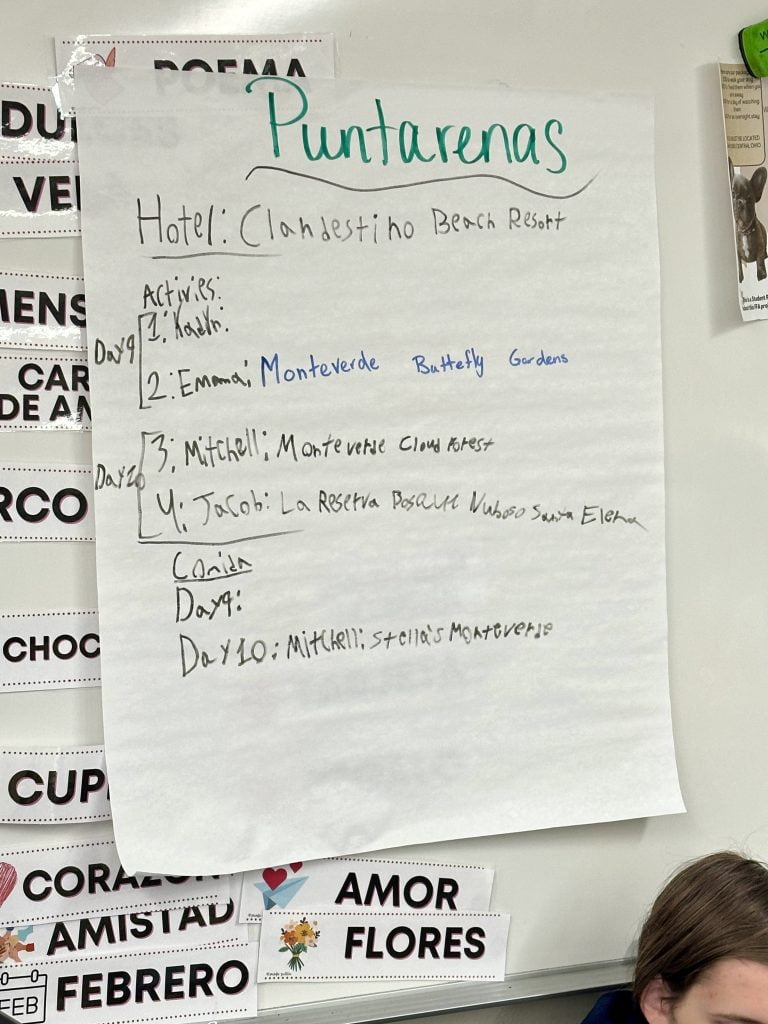 POEMA
DU
VE
Puntarenas
Hotel: Clandestino Beach Resort
Activies:
Day 9
1: Kadyn:
2: Emma: Monteverde Buttefly Gardens
Day 10
3: Mitchell: Monteverde Cloud Forest
4: Jacob: La Reserva Bosque Nuboso Santa Elena
Comida
Day 9:
Day 10: Mitchell: Stella's Monteverde
IENS
CAR
DE AM
RCO
CHOC
CUP
CORAZON
AMISTAD
FEB
FEBRERO
AMOR
FLORES